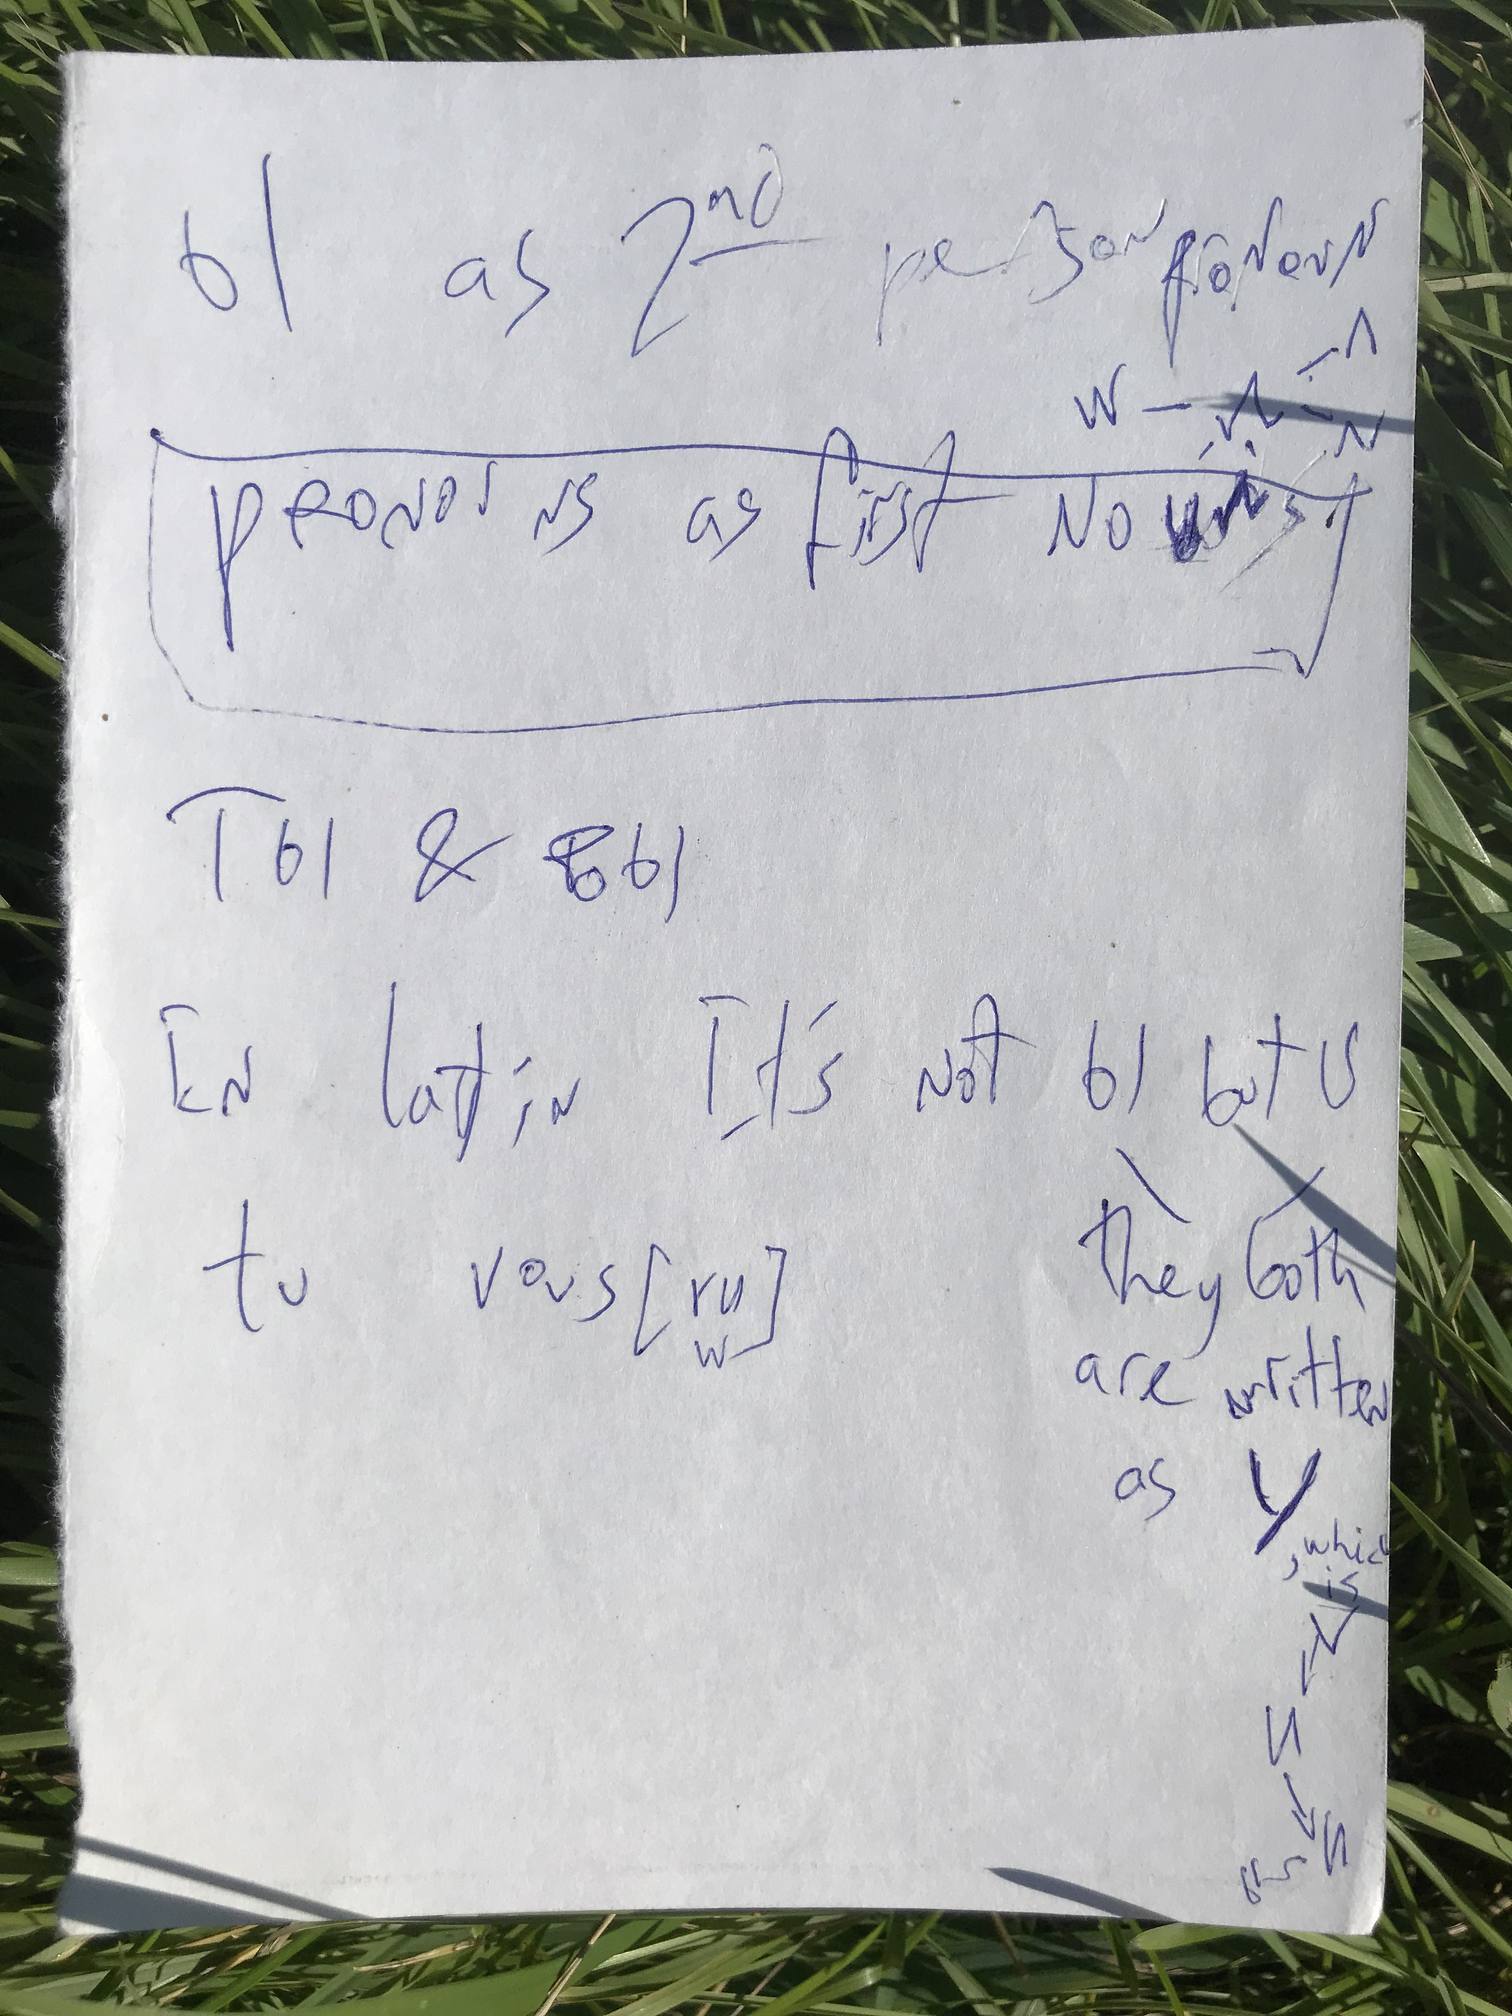 ы as 2nd person pronoun
pronouns as first nouns
ты & вы
In latin It's not ы but U
tu vous [vu]
w
they both
are written
as y
, which
is
и